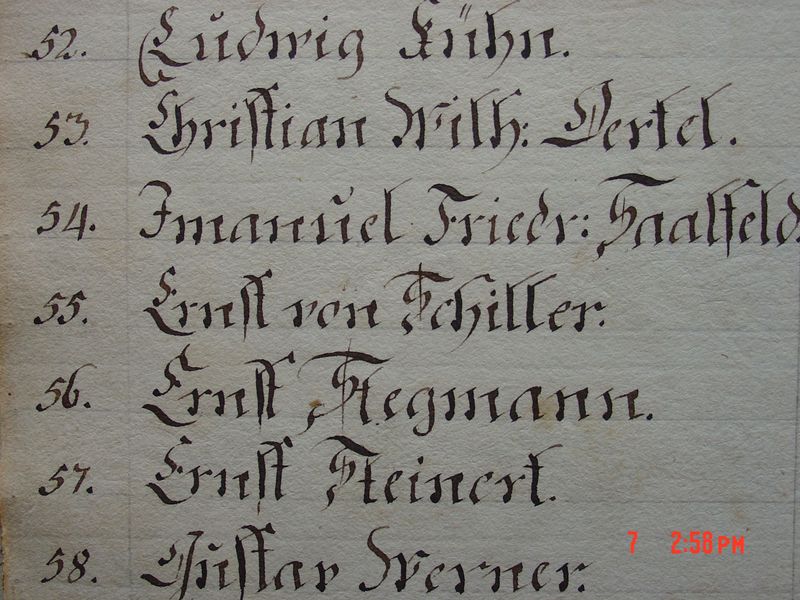 52. Ludwig Kühn.
53. Christian Wilh: Oertel.
54. Imanuel Friedr: Saalfeld.
55. Ernst von Schiller.
56. Ernst Stegmann.
57. Ernst Steinert.
58. Gustav Werner.
7 2:58PM